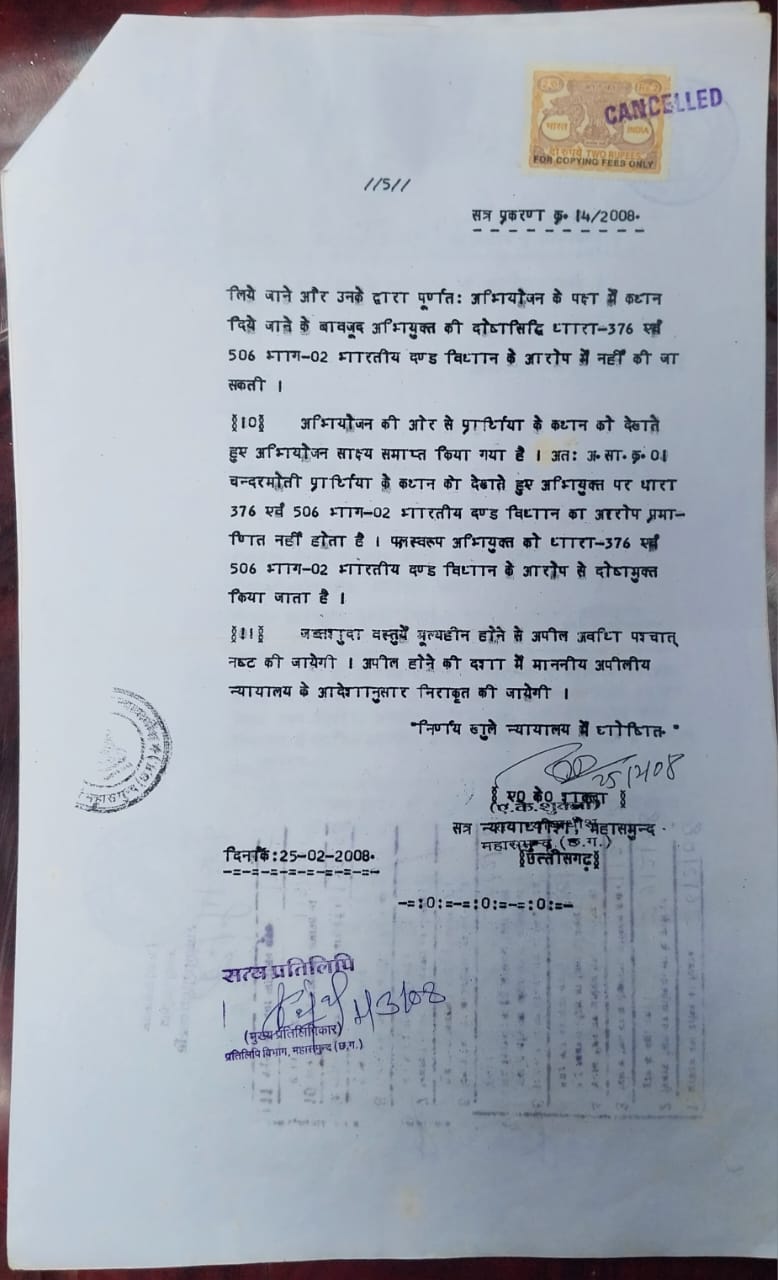 2 रु. Rs. 2
भारत INDIA
दो रुपये TWO RUPEES
FOR COPYING FEES ONLY
CANCELLED
//5//
सत्र प्रकरण क्र. 14/2008.
लिये जाने और उनके द्वारा पूर्णतः अभियोजन के पक्ष में कथन
दिये जाने के बावजूद अभियुक्त की दोषसिद्धि धारा-376 एवं
506 भाग-02 भारतीय दण्ड विधान के आरोप में नहीं की जा
सकती ।
§10§ अभियोजन की ओर से प्रार्थिया के कथन को देखते
हुए अभियोजन साक्ष्य समाप्त किया गया है । अतः अ.सा.क्र.01
चन्दरमोती प्रार्थिया के कथन को देखते हुए अभियुक्त पर धारा
376 एवं 506 भाग-02 भारतीय दण्ड विधान का आरोप प्रमा-
णित नहीं होता है । फलस्वरूप अभियुक्त को धारा-376 एवं
506 भाग-02 भारतीय दण्ड विधान के आरोप से दोषमुक्त
किया जाता है ।
§11§ जब्तशुदा वस्तुयें मूल्यहीन होने से अपील अवधि पश्चात्
नष्ट की जायेगी । अपील होने की दशा में माननीय अपीलीय
न्यायालय के आदेशानुसार निराकृत की जायेगी ।
"निर्णय खुले न्यायालय में घोषित"
25/2/08
§ ए0 के0 शुक्ला §
(ए.के.शुक्ला)
सत्र न्यायाधीश, महासमुन्द.
महासमुन्द (छ.ग.)
§छत्तीसगढ़§
दिनांक:25-02-2008.
-=-=-=-=-=-=-=-=-=-
-=:0:=-=:0:=-=:0:=-
महासमुन्द (छ.ग.)
सत्य प्रतिलिपि
(मुख्य प्रतिलिपिकार)
प्रतिलिपि विभाग, महासमुन्द (छ.ग.)